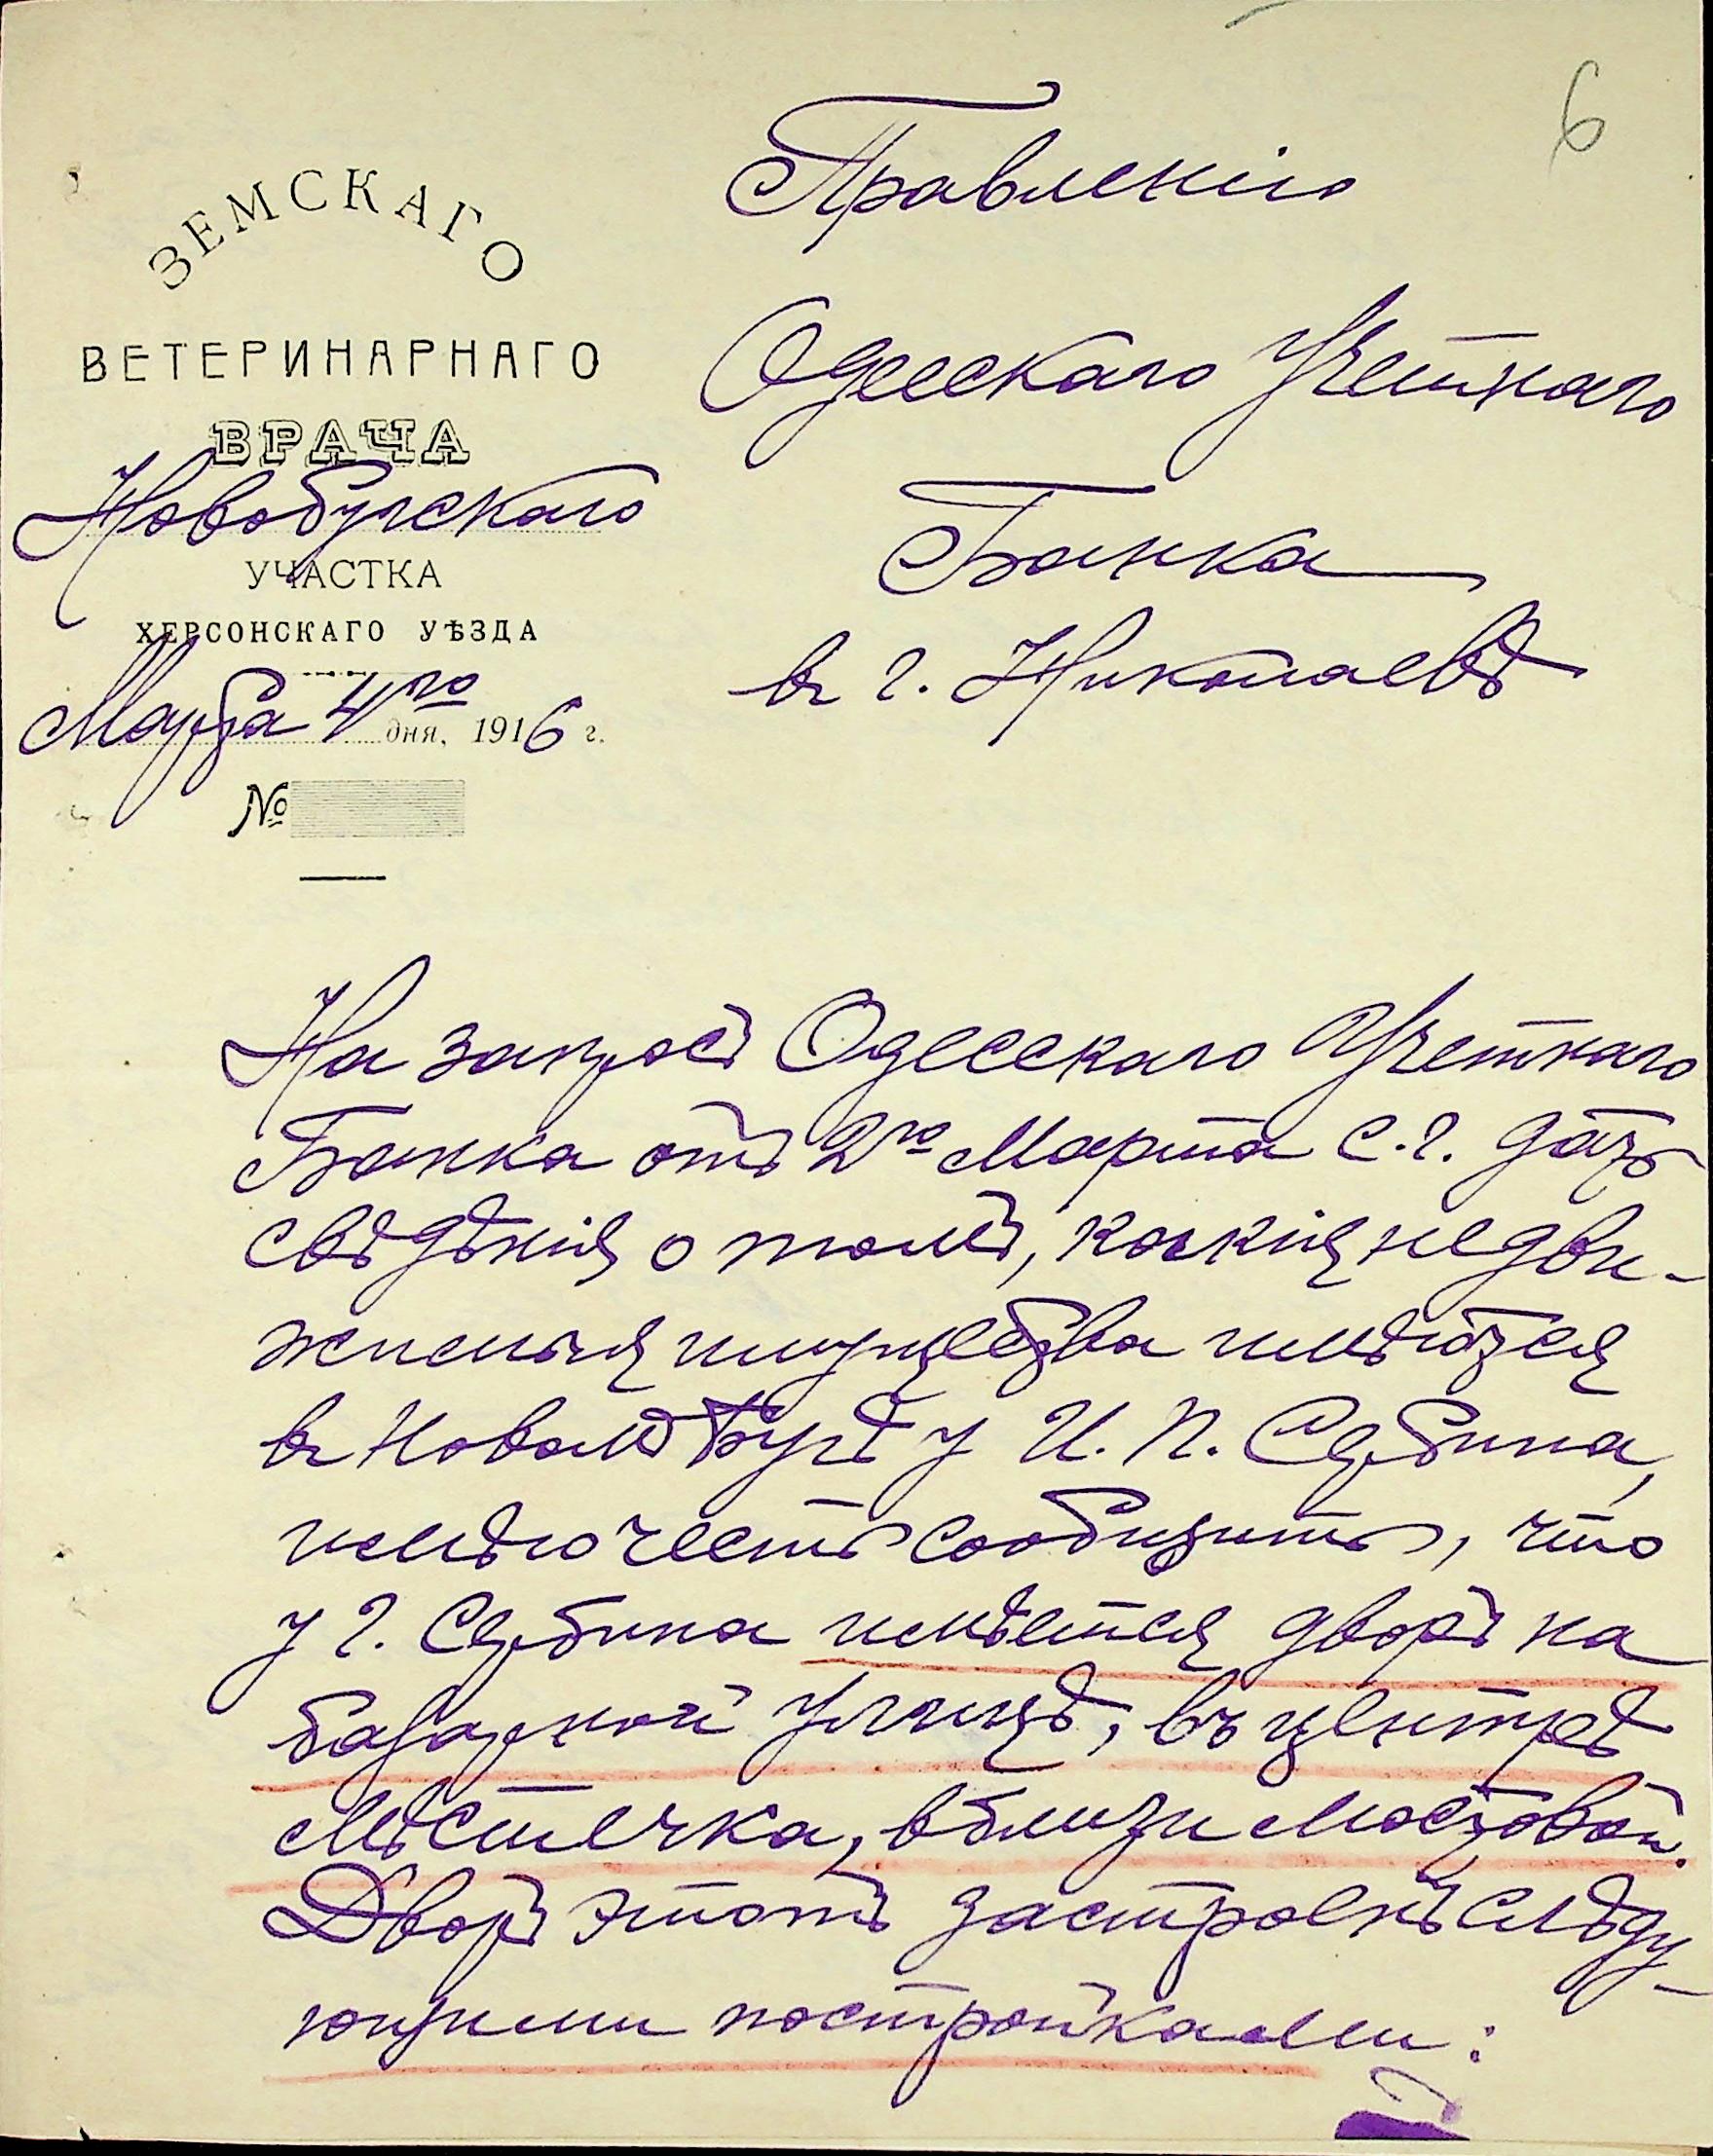 6
ЗЕМСКАГО
ВЕТЕРИНАРНАГО
ВРАЧА
Новобугскаго
УЧАСТКА
ХЕРСОНСКАГО УѢЗДА
Марта 4го дня, 1916 г.
№
Правленію
Одесскаго Учетнаго
Банка
въ г. Николаевѣ
На запросъ Одесскаго Учетнаго
Банка отъ 2го Марта с.г. дать
свѣдѣнія о томъ, какія недви-
жимыя имущества имѣются
въ Новомъ Бугѣ у И. П. Сербина,
имѣю честь сообщить, что
у г. Сербина имѣется дворъ на
базарной улицѣ, въ центрѣ
мѣстечка, вблизи мостовой.
Дворъ этотъ застроенъ слѣду-
ющими постройками: